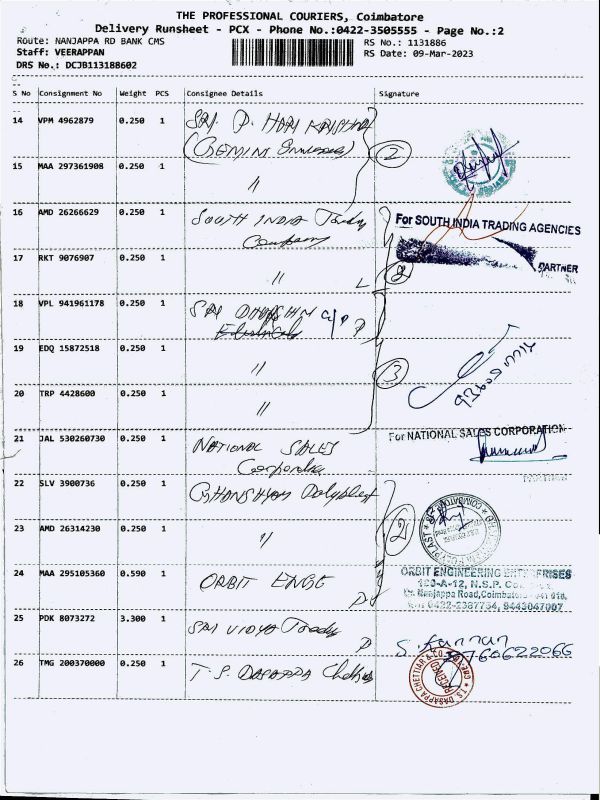 THE PROFESSIONAL COURIERS, Coimbatore
Delivery Runsheet - PCX - Phone No.:0422-3505555 - Page No.:2
Route: NANJAPPA RD BANK CMS
Staff: VEERAPPAN
DRS No.: DCJB113188602
RS No.: 1131886
RS Date: 09-Mar-2023
S No Consignment No Weight PCS Consignee Details Signature
14 VPM 4962879 0.250 1 SRI. P. HARI KRISHNA
(GEMINI
2
15 MAA 297361908 0.250 1 〃
16 AMD 26266629 0.250 1 SOUTH INDIA Trading
Company
For SOUTH INDIA TRADING AGENCIES
PARTNER
17 RKT 9076907 0.250 1 〃
2
18 VPL 941961178 0.250 1 SRI
Electricals
19 EDQ 15872518 0.250 1 〃
3
20 TRP 4428600 0.250 1 〃
21 JAL 530260730 0.250 1 NATIONAL SALES
Corporation
For NATIONAL SALES CORPORATION
PARTNER
22 SLV 3900736 0.250 1 GHANSHYAM Polyplast
23 AMD 26314230 0.250 1 〃
2
24 MAA 295105360 0.590 1 ORBIT ENGG
ORBIT ENGINEERING ENTERPRISES
180-A-12, N.S.P.
Nanjappa Road, Coimbatore
0422-2387734, 9443047007
25 PDK 8073272 3.300 1 SRI VIDYA Trading
S. Kannan
9760622066
26 TMG 200370000 0.250 1 T. S. DASAPPA Chettiar
T.S. DASAPPA CHETTIAR & CO.
RECEIVED